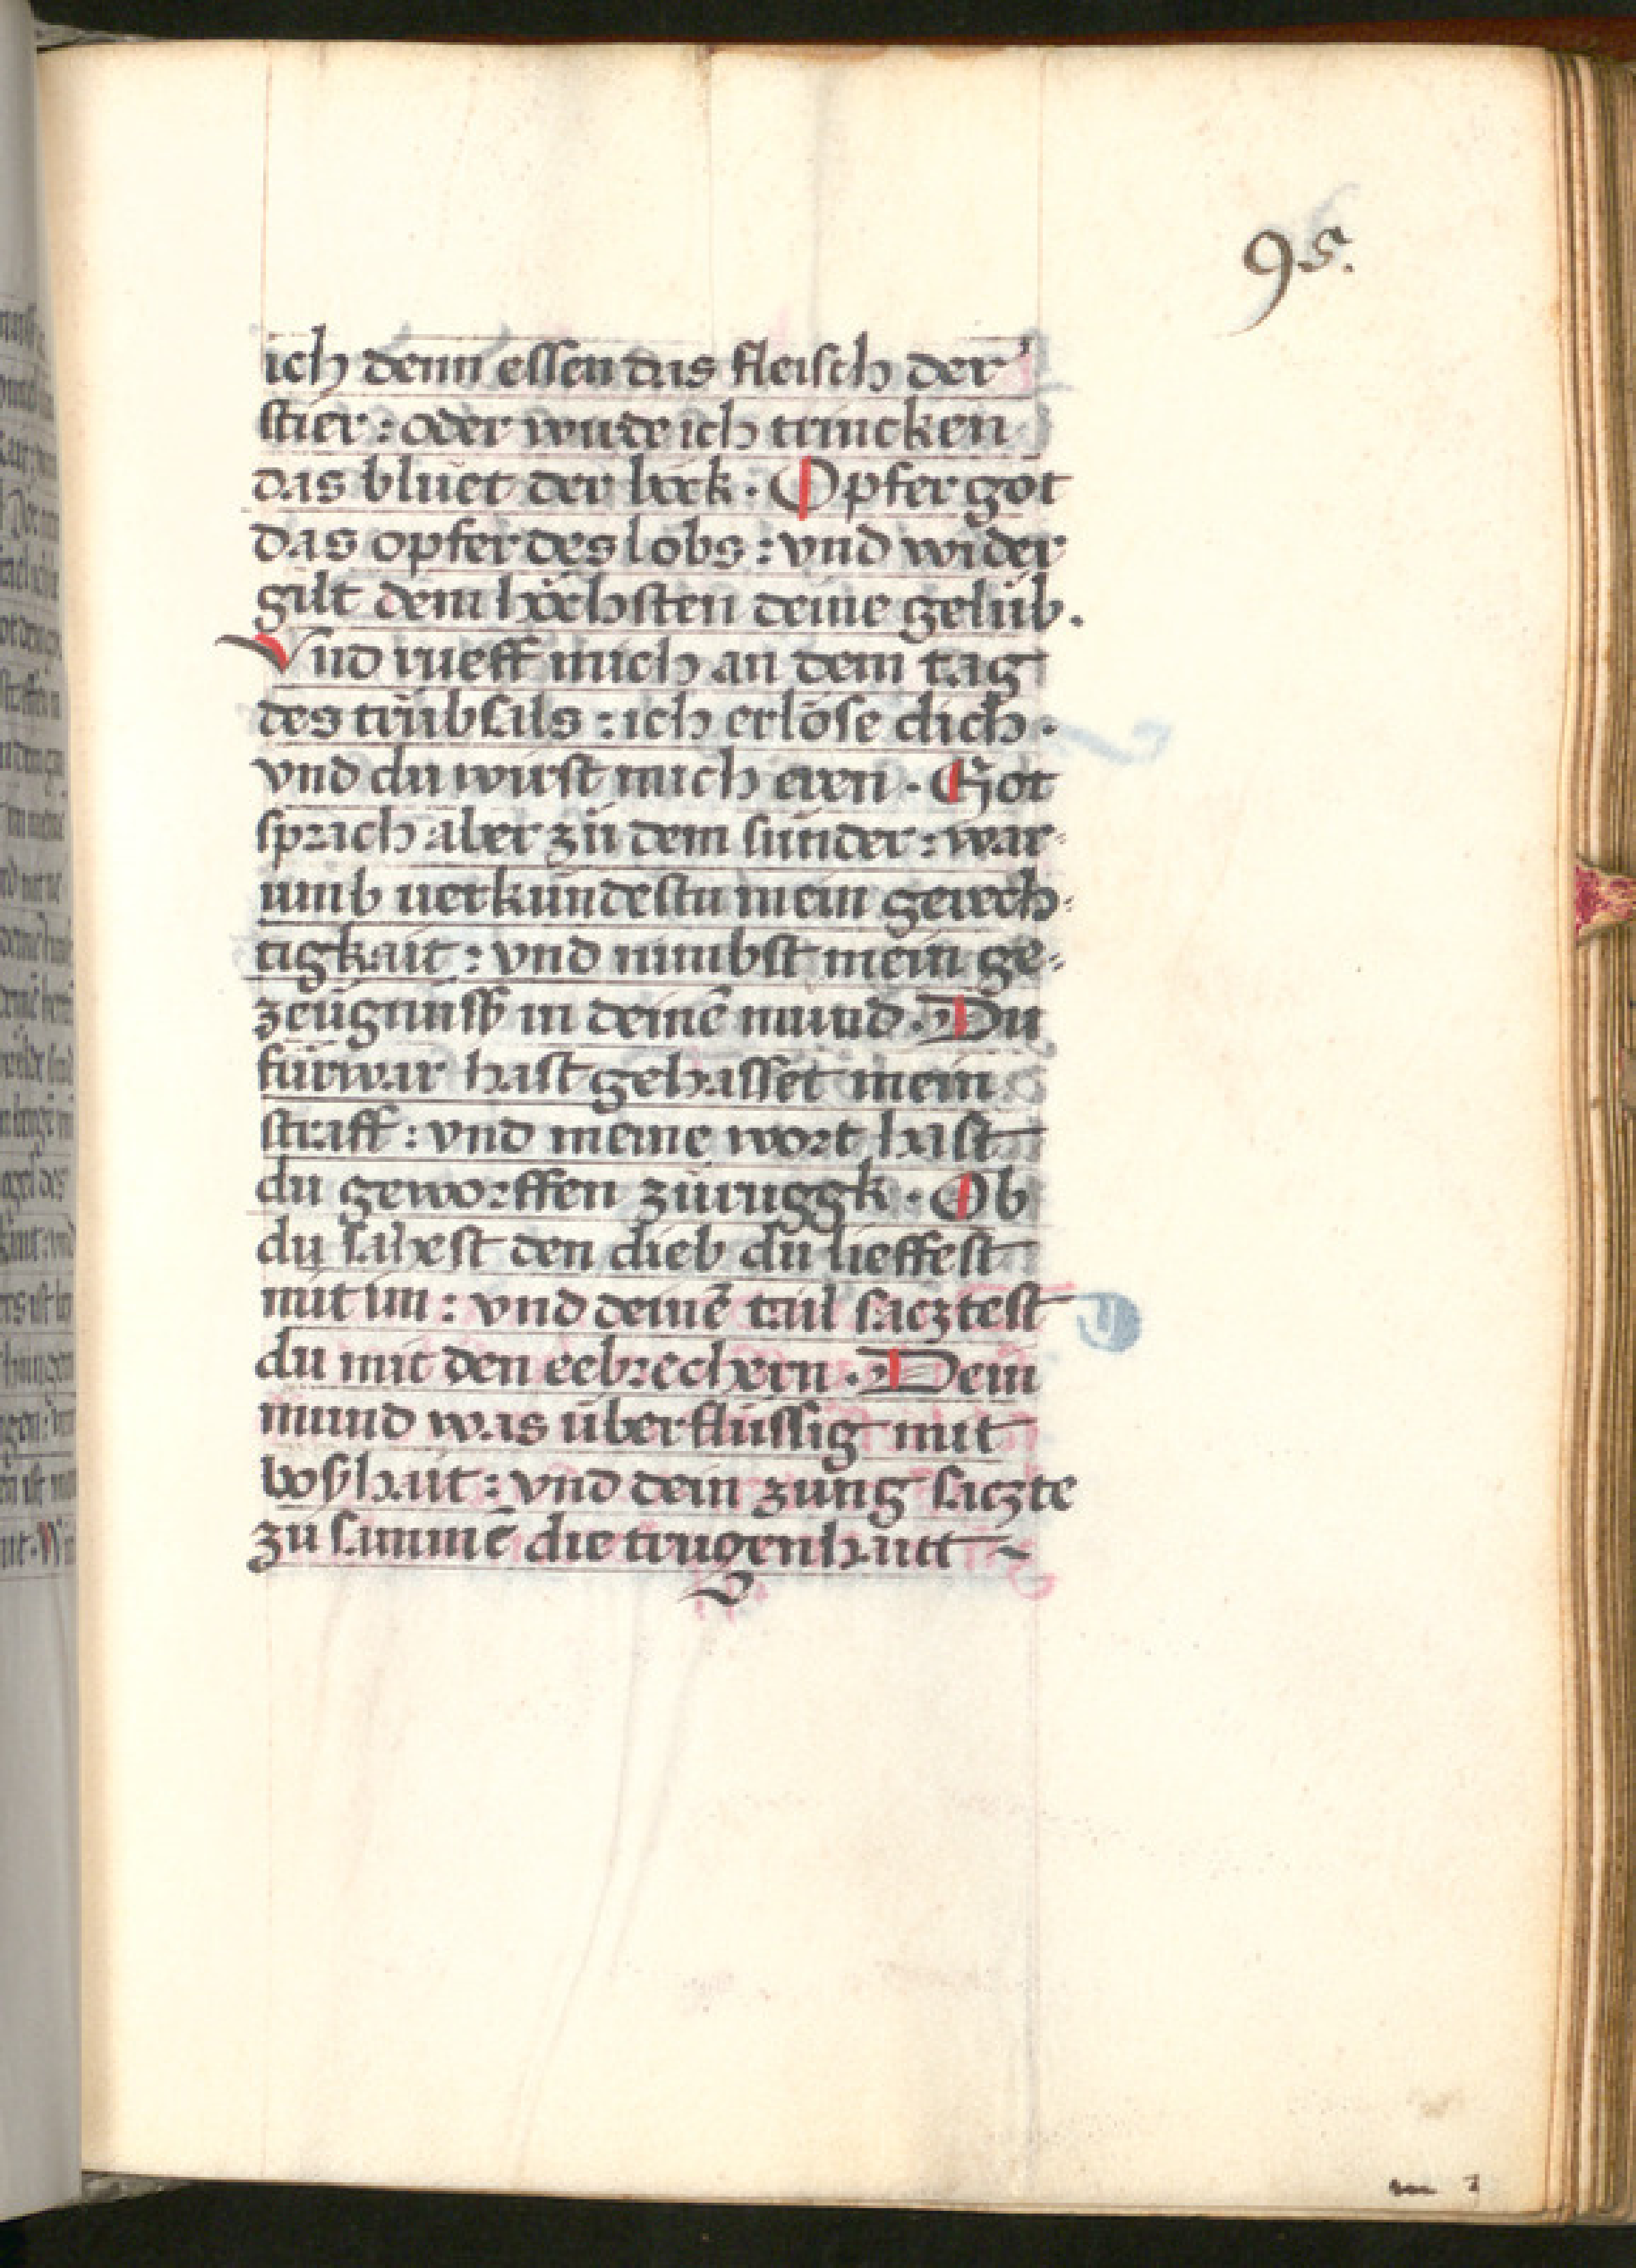 95.
ich denn essen das fleisch der
stier : oder wurde ich trincken
das bluet der böck · Opfer got
das opfer des lobs : vnd wider
gilt dem höchsten deine gelüb.
Vnd rueff mich an dem tag
des trübsals : ich erlöse dich ·
vnd du wirst mich eren · Got
sprach aber zů dem sünder : war-
umb uerkündestu mein gerech-
tigkait : vnd nimbst mein ge-
zeügnuß in deinē mund · Du
fürwar hast gehasset mein
straff : vnd meine wort hast
du geworffen zůruggk · Ob
du sahest den dieb du lieffest
mit im : vnd deinē tail sacztest
du mit den eebrechern · Dein
mund was überflüssig mit
boßhait : vnd dein zung saczte
zů sammē die trugenhaitt